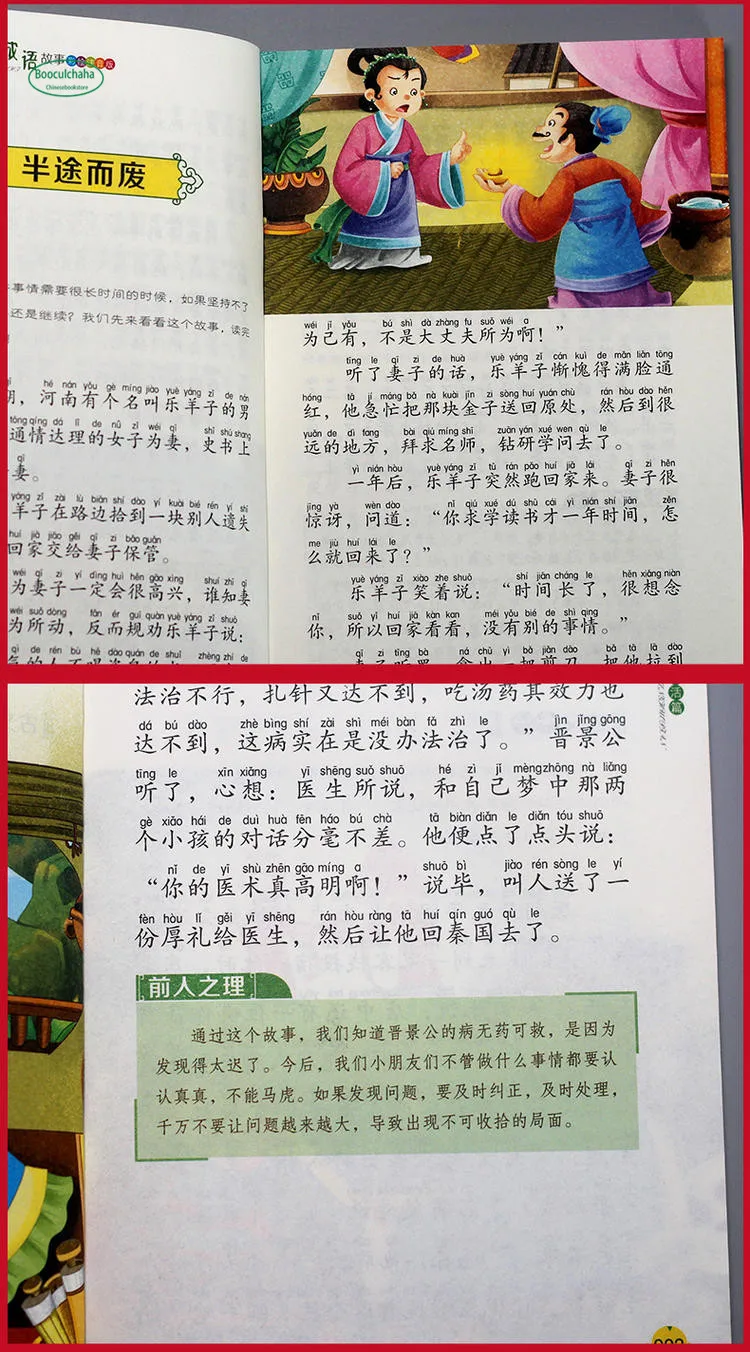 成语故事 彩绘注音版
Booculchaha
Chinesebookstore
半途而废
事情需要很长时间的时候，如果坚持不了
还是继续？我们先来看看这个故事，读完
hé nán yǒu gè míng jiào yuè yáng zǐ de nán
，河南有个名叫乐羊子的男
tōng qíng dá lǐ de nǚ zǐ wéi qī shǐ shū shang
通情达理的女子为妻，史书上
qī
妻。
yáng zǐ zài lù biān shí dào yí kuài bié rén yí shī
羊子在路边拾到一块别人遗失
huí jiā jiāo gěi qī zi bǎo guǎn
回家交给妻子保管。
wéi qī zi yí dìng huì hěn gāo xìng shuí zhī qī
为妻子一定会很高兴，谁知妻
wéi suǒ dòng fǎn ér guī quàn yuè yáng zǐ shuō
为所动，反而规劝乐羊子说：
qì de rén bù hē dào quán de shuǐ zhèng zhí
wéi jǐ yǒu bú shì dà zhàng fu suǒ wéi a
为己有，不是大丈夫所为啊！”
tīng le qī zi de huà yuè yáng zǐ cán kuì de mǎn liǎn tōng
听了妻子的话，乐羊子惭愧得满脸通
hóng tā jí máng bǎ nà kuài jīn zi sòng huí yuán chù rán hòu dào hěn
红，他急忙把那块金子送回原处，然后到很
yuǎn de dì fang bài qiú míng shī zuān yán xué wen qù le
远的地方，拜求名师，钻研学问去了。
yì nián hòu yuè yáng zǐ tū rán pǎo huí jiā lái qī zi hěn
一年后，乐羊子突然跑回家来。妻子很
jīng yà wèn dào nǐ qiú xué dú shū cái yì nián shí jiān zěn
惊讶，问道：“你求学读书才一年时间，怎
me jiù huí lái le
么就回来了？”
yuè yáng zǐ xiào zhe shuō shí jiān cháng le hěn xiǎng niàn
乐羊子笑着说：“时间长了，很想念
nǐ suǒ yǐ huí jiā kàn kan méi yǒu bié de shì qing
你，所以回家看看，没有别的事情。”
qī zi tīng bà ná chū yì bǎ jiǎn dāo bǎ tā lā dào
妻子听罢，拿出一把剪刀，把他拉到
法治不行，扎针又达不到，吃汤药其效力也
活篇
dá bú dào zhè bìng shí zài shì méi bàn fǎ zhì le jìn jǐng gōng
达不到，这病实在是没办法治了。”晋景公
tīng le xīn xiǎng yī shēng suǒ shuō hé zì jǐ mèng zhōng nà liǎng
听了，心想：医生所说，和自己梦中那两
gè xiǎo hái de duì huà fēn háo bú chà tā biàn diǎn le diǎn tóu shuō
个小孩的对话分毫不差。他便点了点头说：
nǐ de yī shù zhēn gāo míng a shuō bì jiào rén sòng le yí
“你的医术真高明啊！”说毕，叫人送了一
fèn hòu lǐ gěi yī shēng rán hòu ràng tā huí qín guó qù le
份厚礼给医生，然后让他回秦国去了。
前人之理
通过这个故事，我们知道晋景公的病无药可救，是因为
发现得太迟了。今后，我们小朋友们不管做什么事情都要认
认真真，不能马虎。如果发现问题，要及时纠正，及时处理，
千万不要让问题越来越大，导致出现不可收拾的局面。